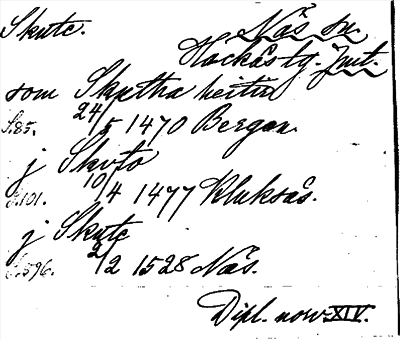 Skute.
Näs sn.
Hackås tg. Jmt.
som Skutha heitir
S.85. 24/5 1470 Bergen.
j Skuto
S.101. 10/4 1477 Kluksås.
j Skute
S.596. 2/2 1528 Näs.
Dipl. norv. XIV.